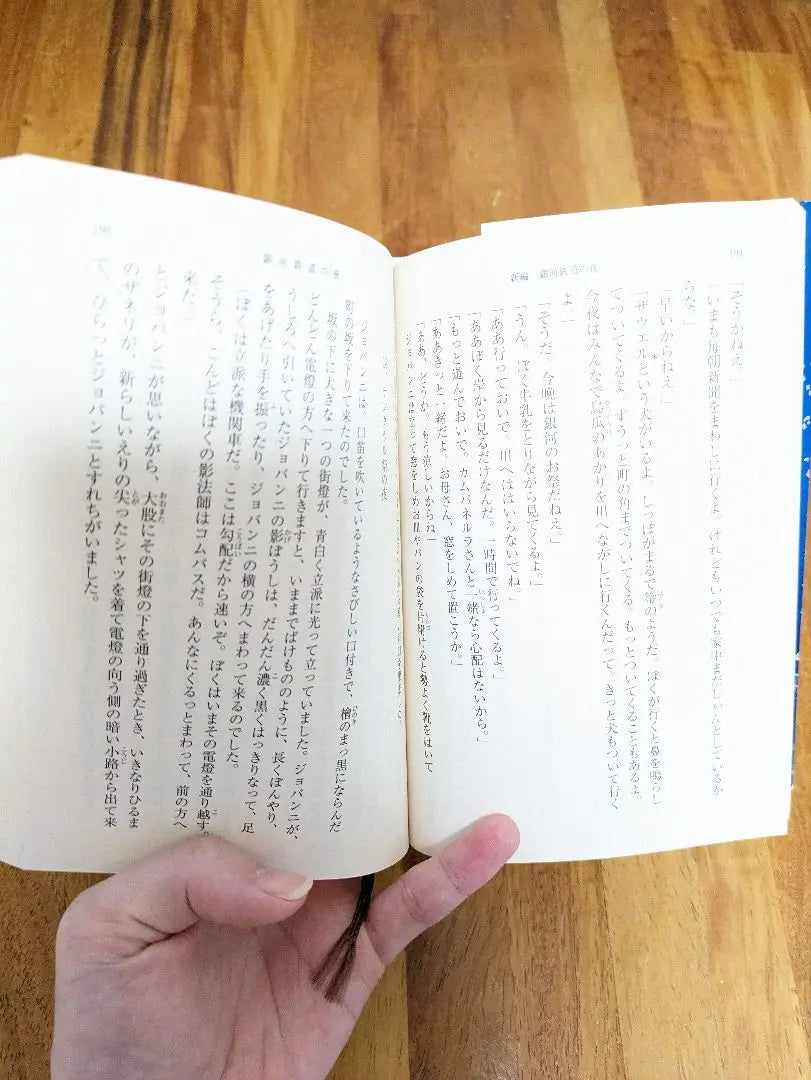 新編 銀河鉄道の夜
「そうかねえ。」
「いまも毎朝新聞をまわしに行くよ。けれどもいつでも家中まだしぃんとしているか
らな。」
「早いからねえ。」
「ザウエルという犬がいるよ。しっぽがまるで箒のようだ。ぼくが行くと鼻を鳴らし
てついてくるよ。ずうっと町の角までついてくる。もっとついてくることもあるよ。
今夜はみんなで烏瓜のあかりを川へながしに行くんだって。きっと犬もついて行く
よ。」
「そうだ。今晩は銀河のお祭だねえ。」
「うん。ぼく牛乳をとりながら見てくるよ。」
「ああ行っておいで。川へははいらないでね。」
「ああぼく岸から見るだけなんだ。一時間で行ってくるよ。」
「もっと遊んでおいで。カムパネルラさんと一緒なら心配はないから。」
「ああきっと一緒だよ。お母さん、窓をしめて置こうか。」
「ああ、どうか。もう涼しいからね」
ジョバンニは立って窓をしめお皿やパンの袋を片附けると勢よく靴をはいて
銀河鉄道の夜
ジョバンニは、口笛を吹いているようなさびしい口付きで、檜のまっ黒にならんだ
町の坂を下りて来たのでした。
坂の下に大きな一つの街燈が、青白く立派に光って立っていました。ジョバンニが、
どんどん電燈の方へ下りて行きますと、いままでばけもののように、長くぼんやり、
うしろへ引いていたジョバンニの影ぼうしは、だんだん濃く黒くはっきりなって、足
をあげたり手を振ったり、ジョバンニの横の方へまわって来るのでした。
（ぼくは立派な機関車だ。ここは勾配だから速いぞ。ぼくはいまその電燈を通り越す。
そうら、こんどはぼくの影法師はコムパスだ。あんなにくるっとまわって、前の方へ
来た。）
とジョバンニが思いながら、大股にその街燈の下を通り過ぎたとき、いきなりひるま
のザネリが、新らしいえりの尖ったシャツを着て電燈の向う側の暗い小路から出て来
て、ひらっとジョバンニとすれちがいました。